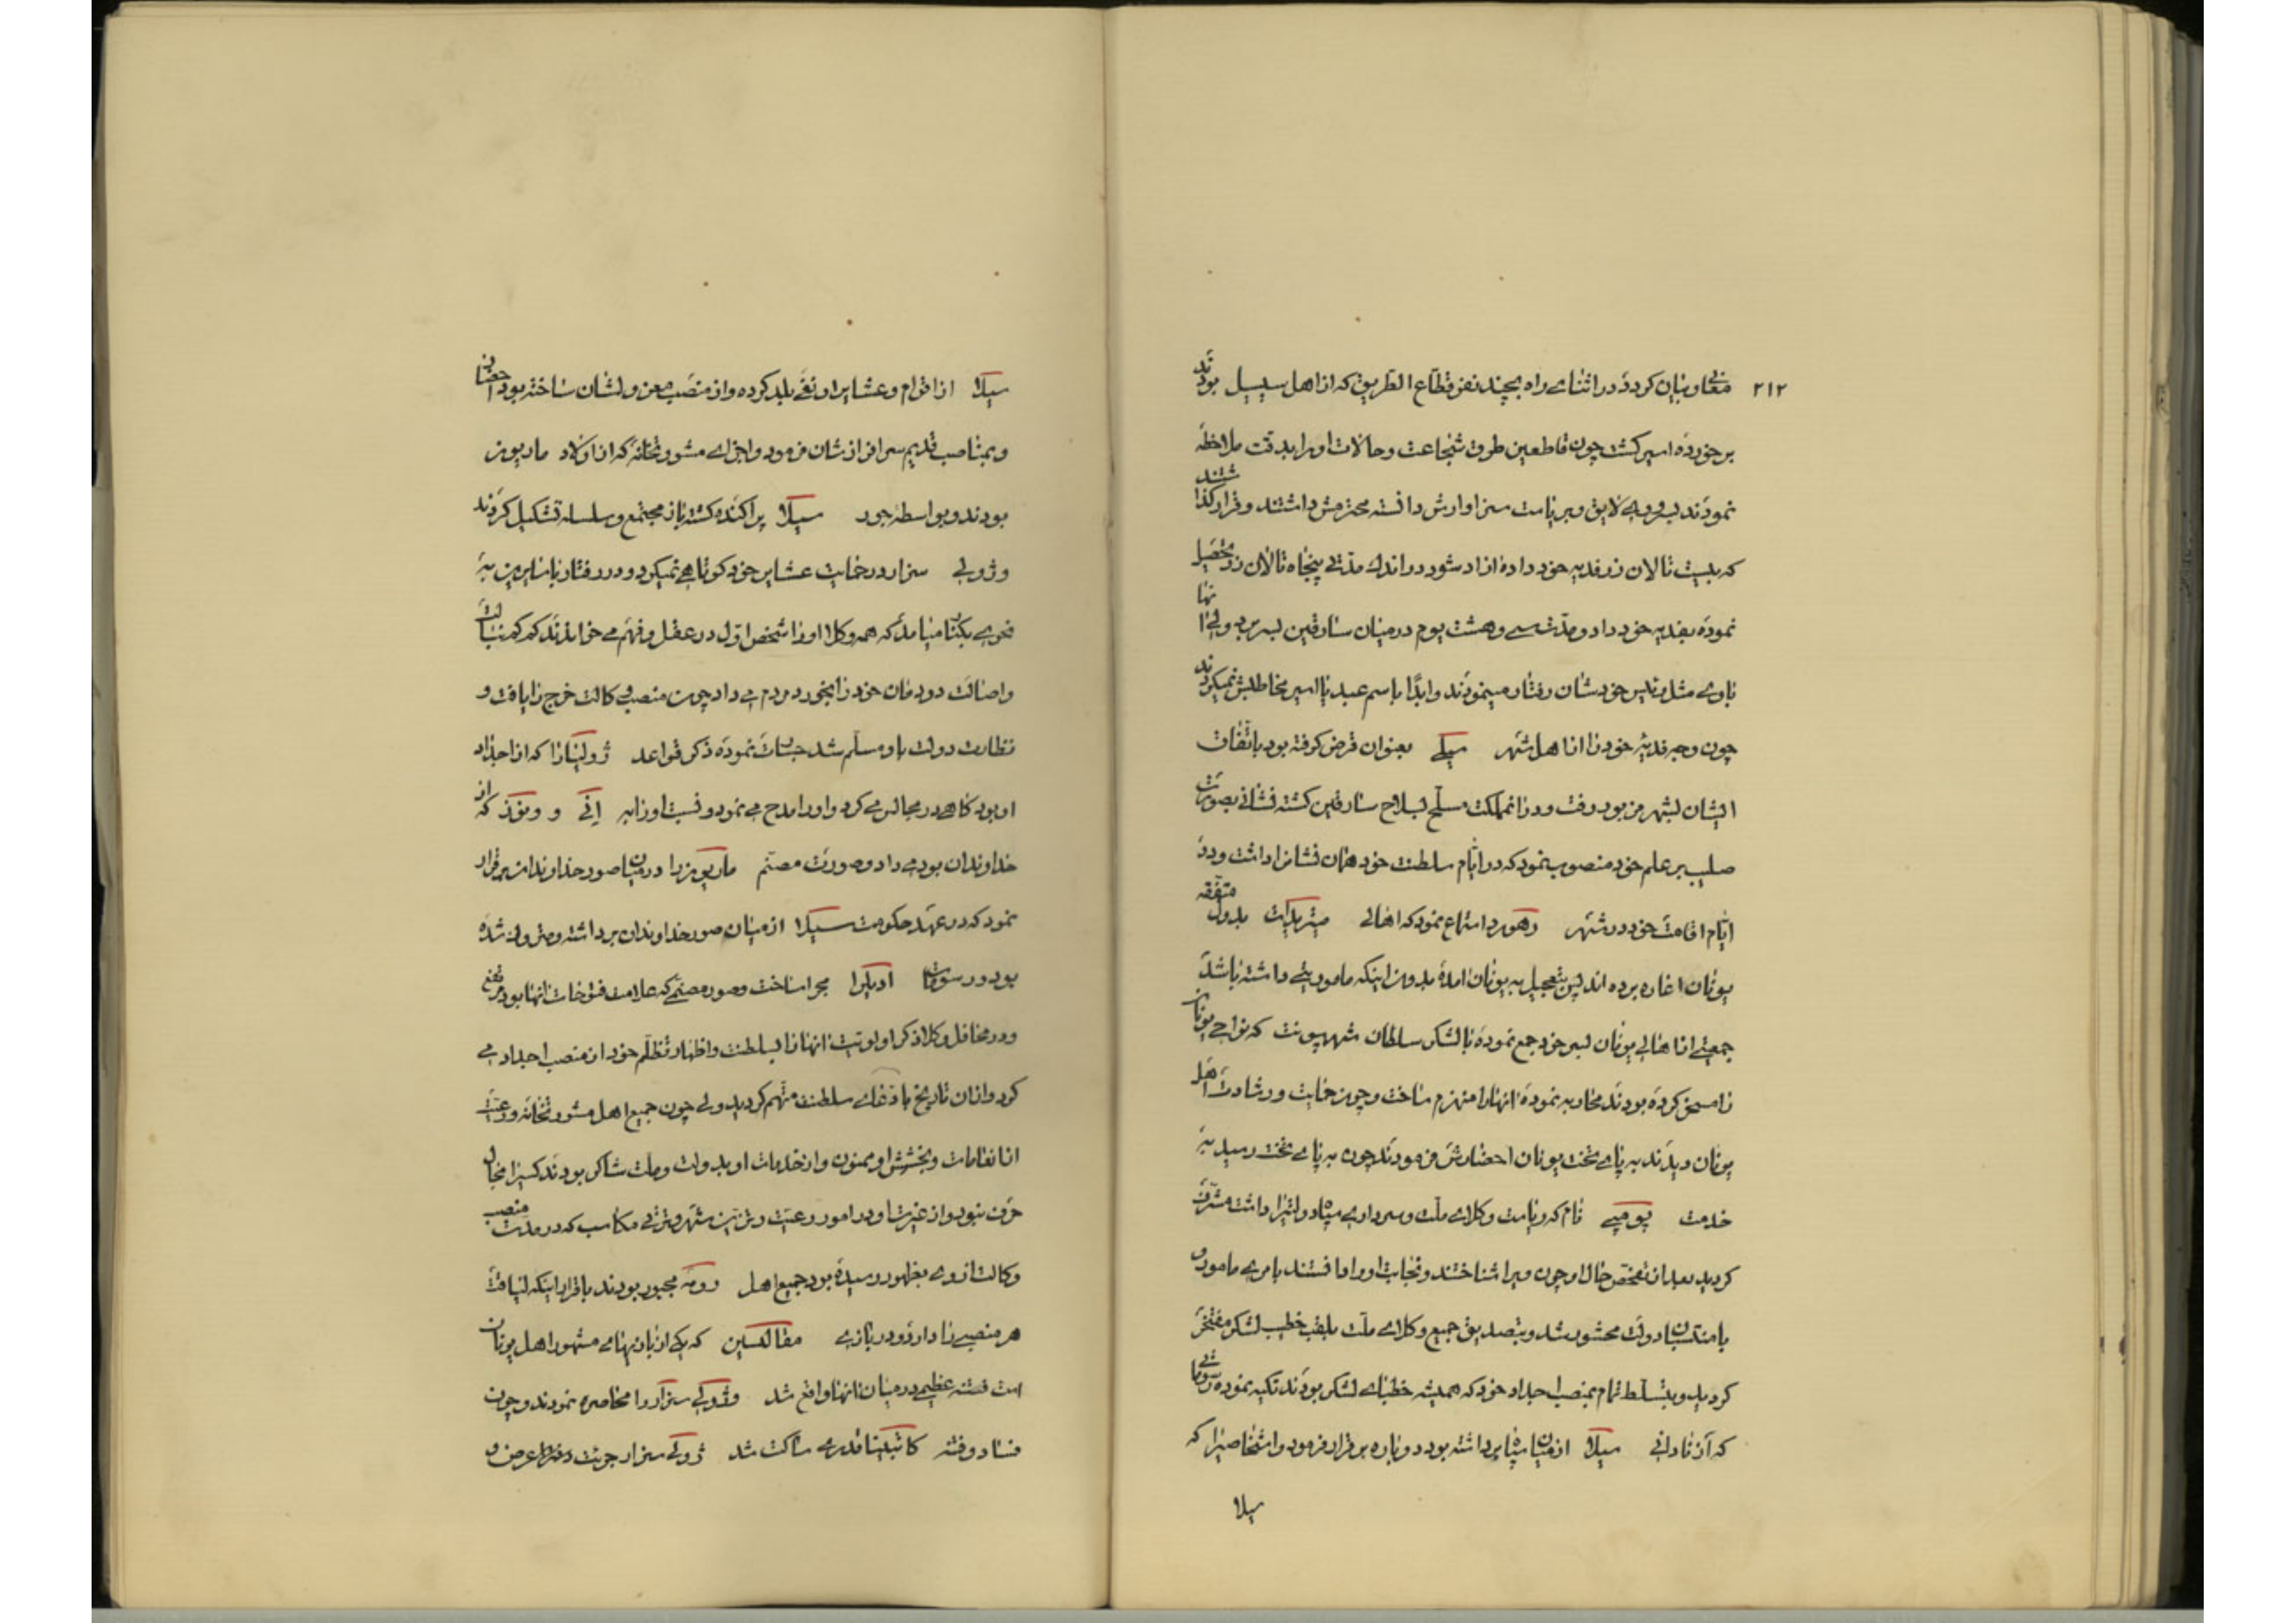 ۲۱۲ معاودت بیان کرد و در اثنای راه بچند نفر قطّاع الطریق که از اهل سیسیل بودند
برخورده اسیر گشت چون قاطعین طرق شجاعت و حالات او را بدقت ملاحظه
نمودند بسروری لایق و بریاست سزاوارش دانسته محترمش داشتند و قرار گذاشتند
که بیست تالان زر فدیه خود داده ازاد شود در اندک مدّتی پنجاه تالان زر تحصیل
نموده بفدیه خود داد و مدّت سی و هشت یوم در میان سارقین بسر برد ولی انها
باوی مثل رئیس خودشان رفتار مینمودند و ابدًا باسم عبد یا اسیر مخاطبش نمیکردند
چون وجه فدیه خود را از اهل شهر میلی بعنوان قرض گرفته بود باتّفاق
ایشان بشهر مزبور رفت و در انمملکت مسلّح بسلاح سارقین گشته نشانی بصورت
صلیب بر علم خود منصوب نمود که در ایّام سلطنت خود همان نشانرا داشت و در
ایّام اقامت خود در شهر رهود استماع نمود که اهالی میتریدات بدول متفقه
یونان اغاره برده اند پس بتعجیل به یونان امده بدون اینکه ماموریتی داشته باشد
جمعیتی از اهالی یونان بسر خود جمع نموده با لشکر سلطان شهر پونت که نواحی یونان
را مسخر کرده بودند محاربه نموده انهارا منهزم ساخت و چون جنابت و رشادت اهل
یونان دیدند به پای تخت یونان احضارش فرمودند چون به پای تخت رسید به
خدمت پومپی نام که ریاست وکلای ملّت و سرداری سپاه دولتیرا داشت مشرّف
گردید بعد از تفحّص حال او چون ویرا شناختند و نجابت او را دانستند بامری مامور و
بامتدینان دولت محشور شد و بتصدیق جمیع وکلای ملّت بلقب خطیب لشکر مفتخر
گردید و بتسلّط تمام بمنصب اجداد خود که همیشه خطبای لشکر بودند تکیه نموده رسومات
که از نادانی سیلا از میان سپاه برداشته بود دوباره برقرار فرمود و اشخاصیرا که
سیلا
سیلا از اقوام و عشایر او نفی بلد کرده و از منصب معزولشان ساخته بود احضار
و بمناصب قدیم سرافرازشان فرمود و اجزای مشورتخانه که از اولاد ماریوس
بودند و بواسطه جود سیلا پراکنده گشته باز مجتمع و سلسله تشکیل کردند
و ژولی سزار در حمایت عشایر خود کوتاهی نمیکرد و در رفتار با سایرین به
نحوی یکتا میامد که همه وکلا او را شخص اوّل در عقل و فهم می خواندند کم کم نسالت
و اصالت دودمان خود را بخورد مردم می داد چون منصب وکالت خرج را یافت و
نظارت دولت باو مسلّم شد جسارت نموده ذکر قواعد ژولیارا که از اجداد
او بود کاهی در مجالس می کرد و او را مدح می نمود و نسبت او را به انی و ونوز که از
خداوندان بود می داد و صورت مصنّم ماریوس را در میان صور خداوندان برقرار
نمود که در عهد حکومت سیلا از میان صور خداوندان برداشته و متروک شده
بود و رسومات ادیلرا مجرا ساخت و صور مصنّمی که علامت فتوحات انها بود مرتفع
و در محافل وکلا ذکر اولویّت انهارا بسلطنت و اظهار تظلّم خود از منصب اجداد می
کرد و از ان تاریخ باّدعای سلطنت متّهم گردید ولی چون جمیع اهل مشورتخانه و رعیّت
از انعامات و بخشش او ممنون و از خدمات او بدولت و ملّت شاکر بودند کسیرا مجال
حرف نبود و از غیرت او در امور رعیّت و تزئین شهر و ترقی مکاسب که در مدّت منصب
وکالت از وی بظهور رسیده بود جمیع اهل رومه مجبور بودند باقرار اینکه لیاقت
هر منصبیرا دارد و در بازی مقالکسین که یکی از بازیهای مشهور اهل یونان
است فتنه عظیمی در میان انها واقع شد و ژولی سزار را محاصره نمودند و چون
فساد و فتنه کاتیلینا قدری ساکت شد ژولی سزار جرئت دفتر عرض و